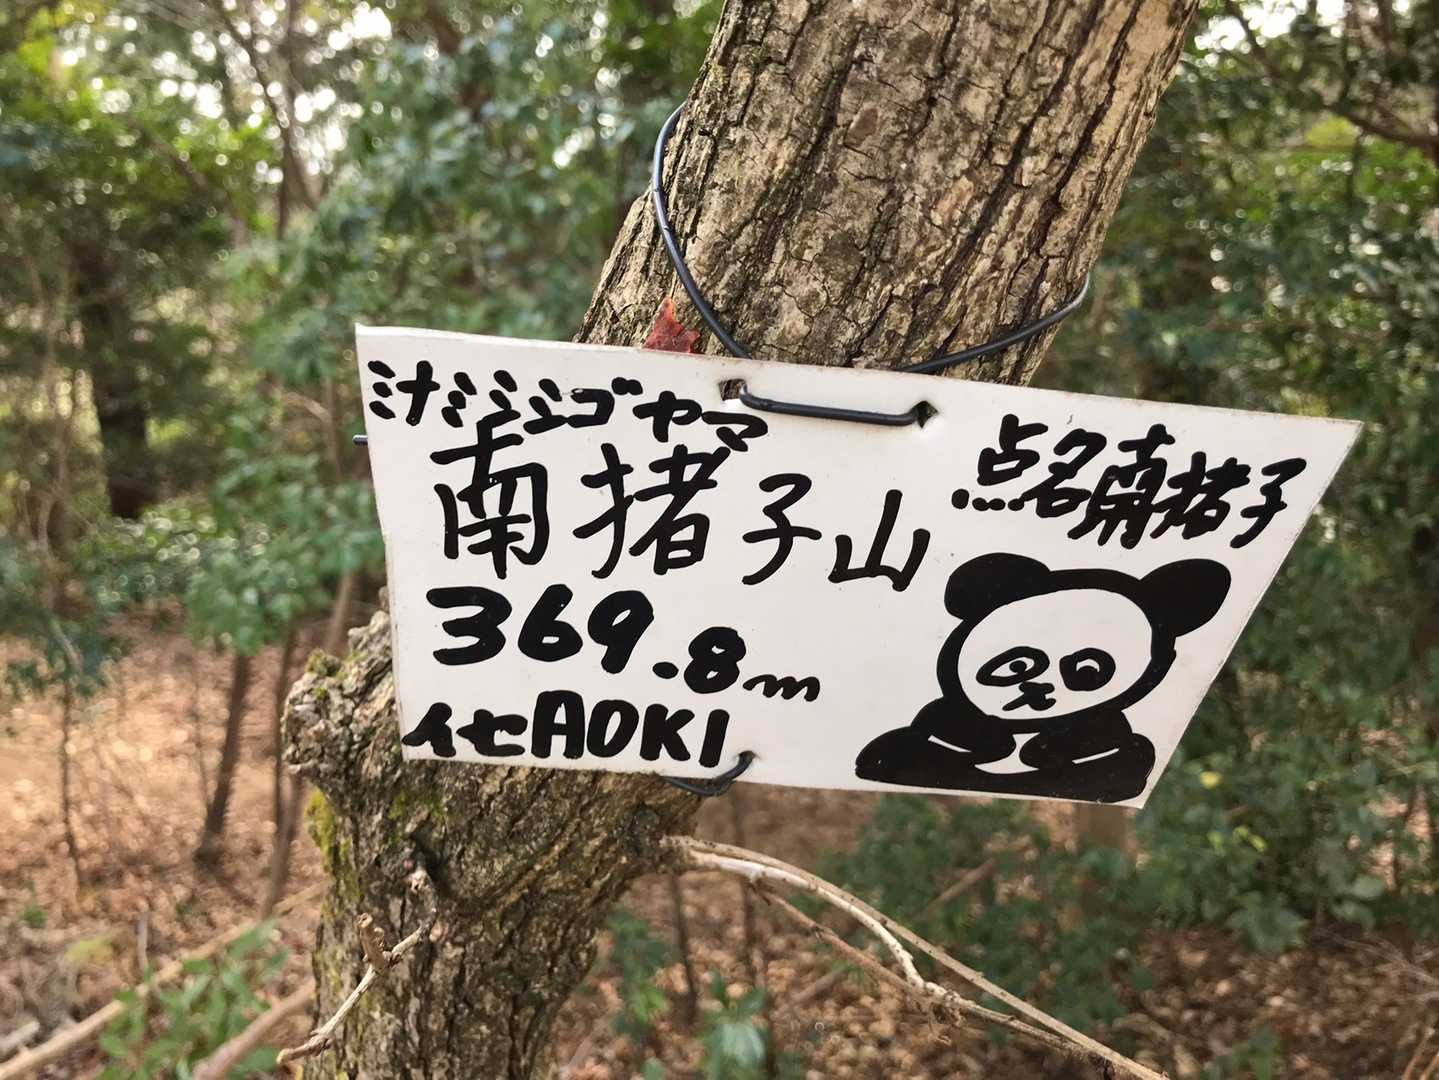 ミナミシシゴヤマ
南猪子山
点名南猪子
369.8m
イセAOKI